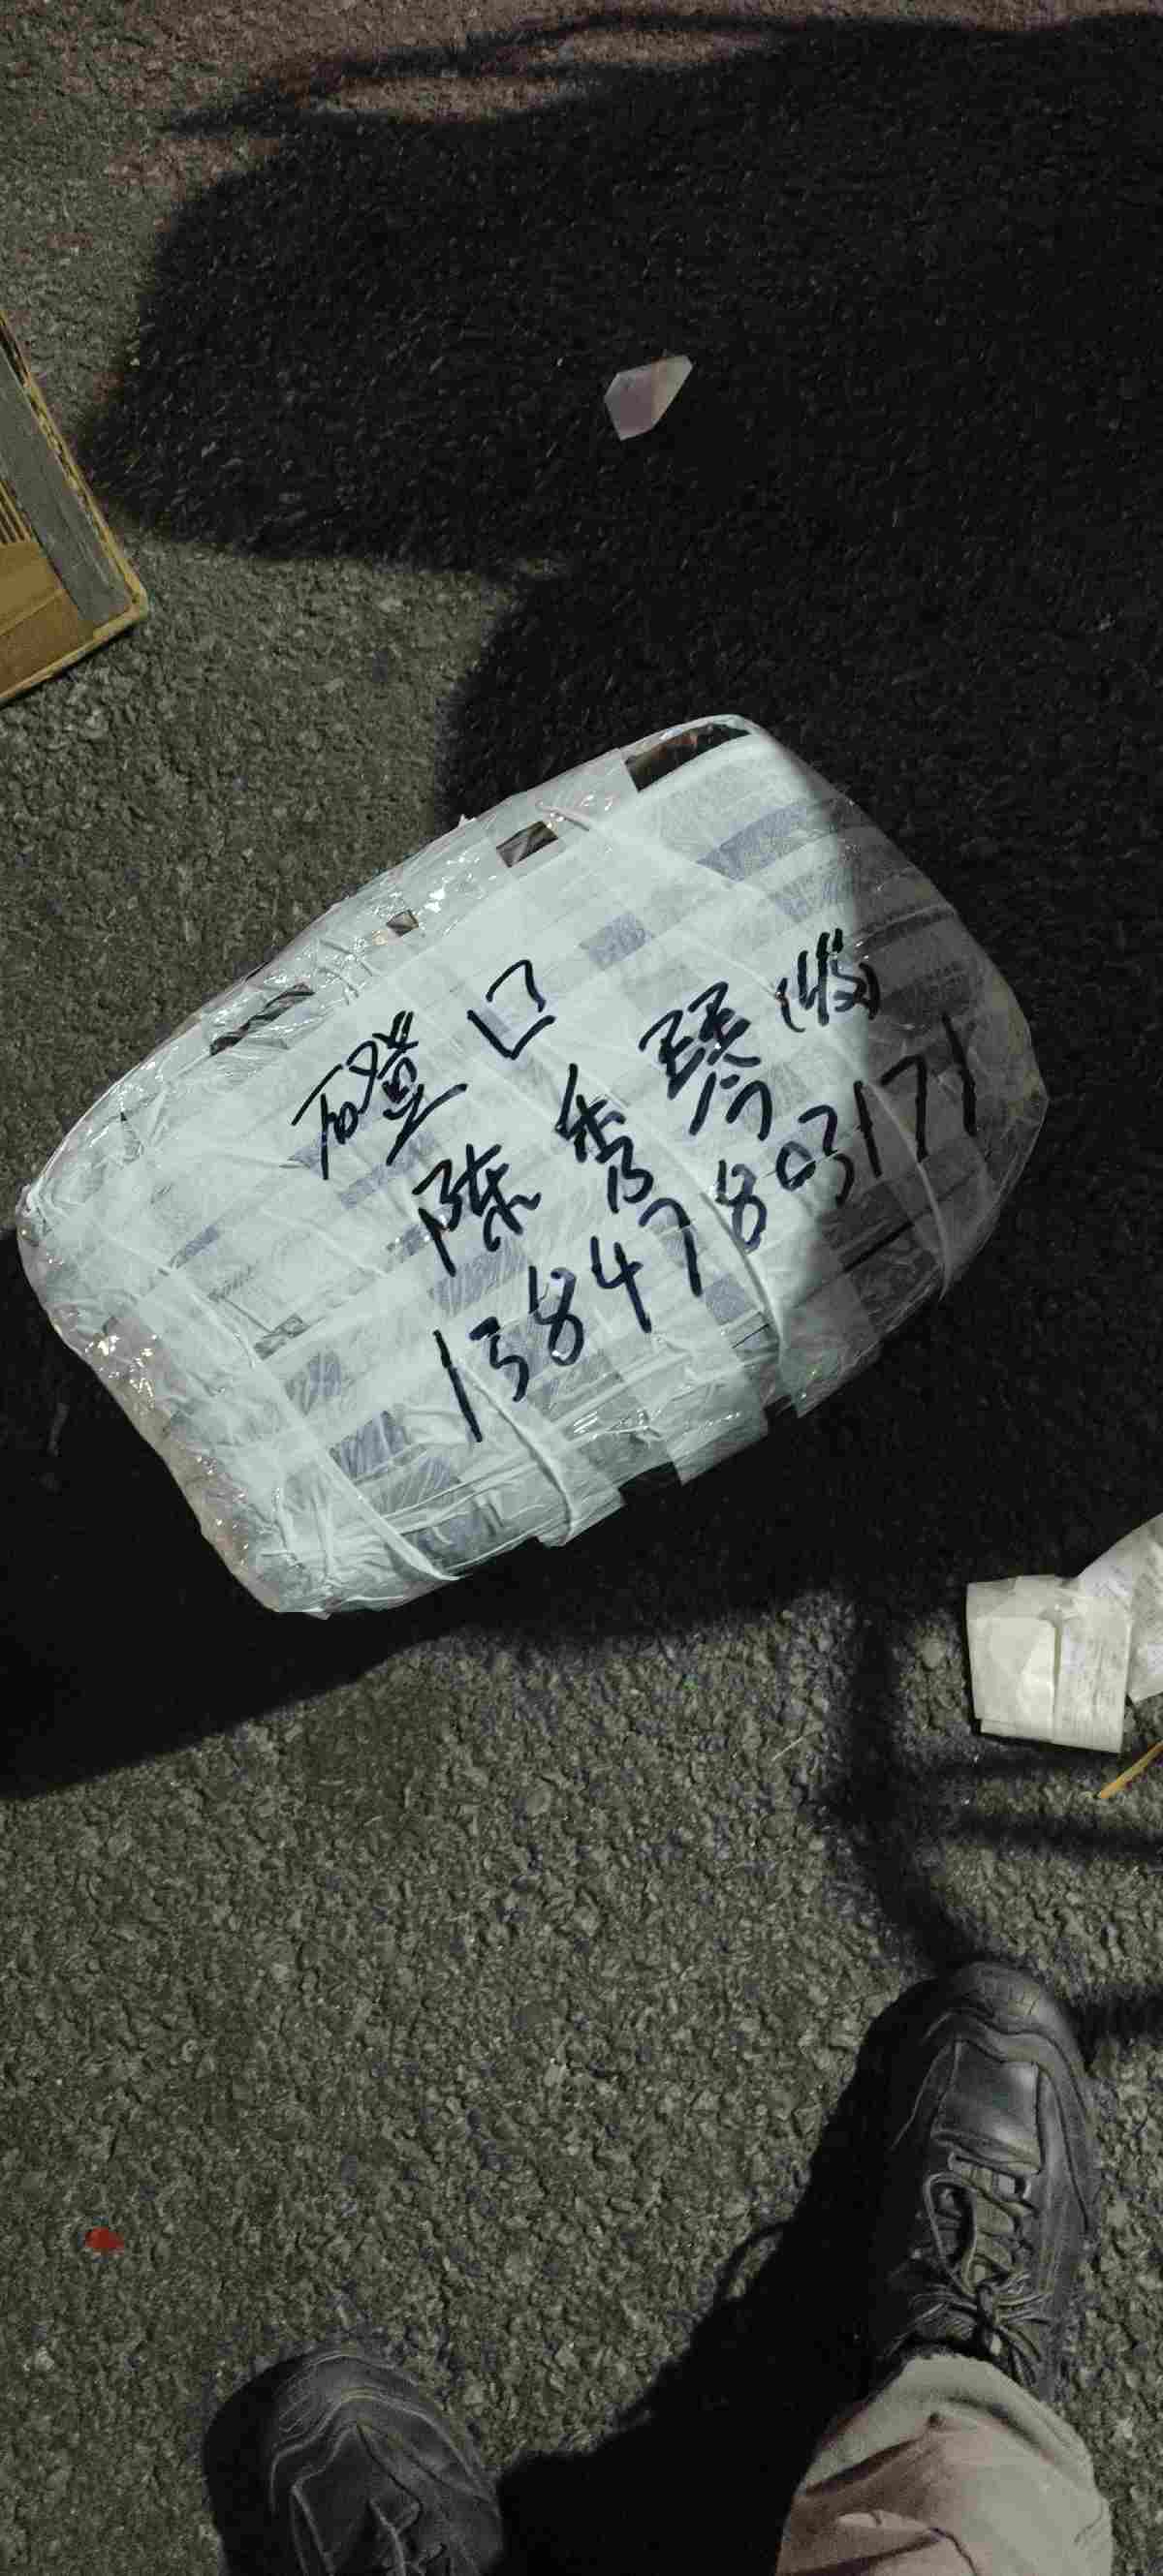 磴口
陈秀琴(收)
13847803171